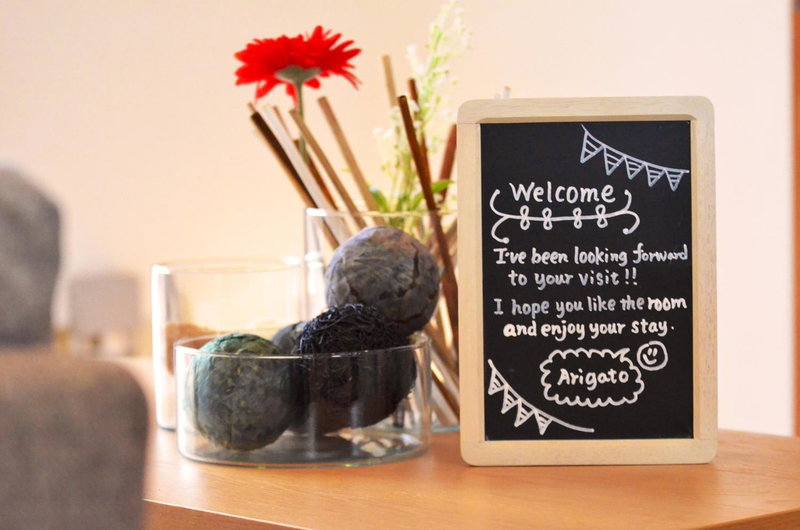 Welcome
I've been looking forward
to your visit!!
I hope you like the room
and enjoy your stay.
Arigato